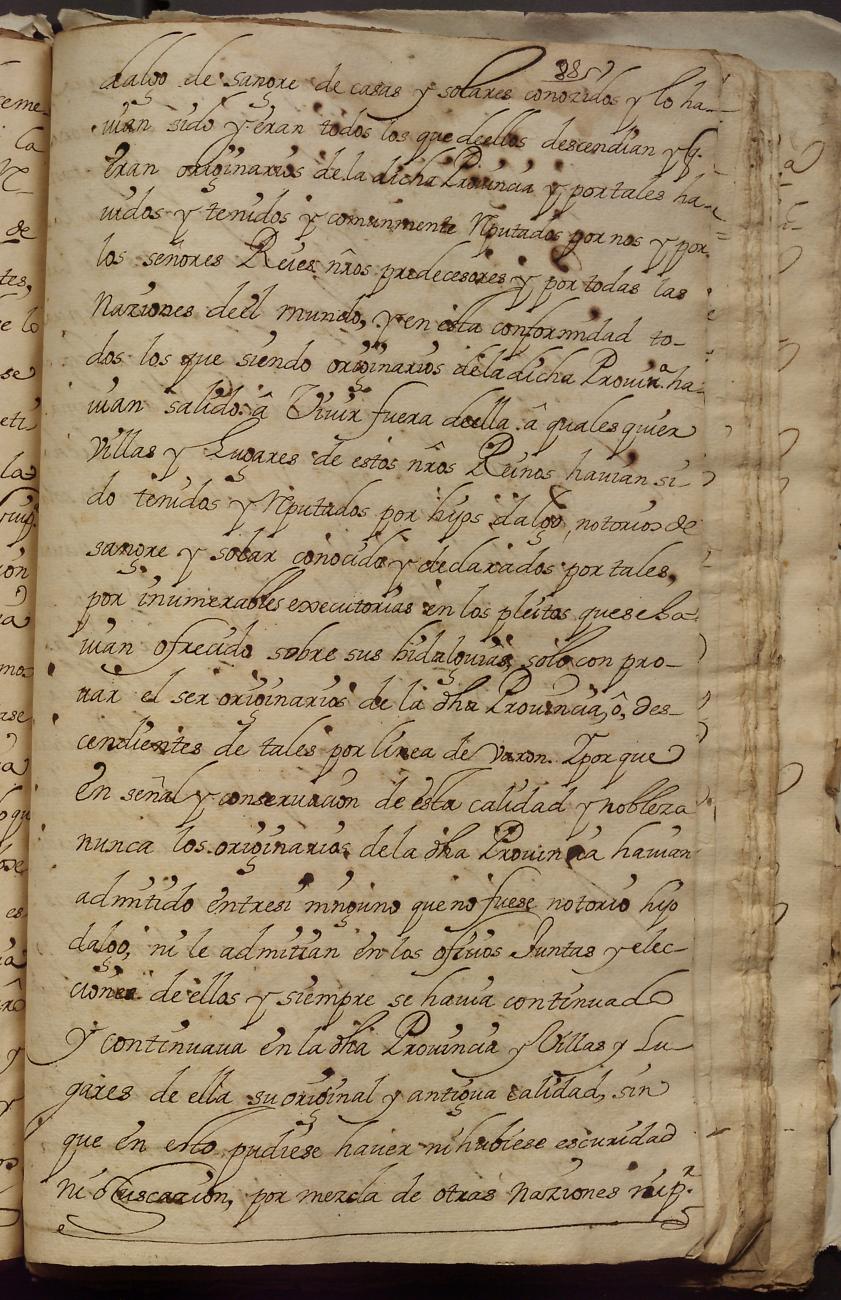 885
dalgo de sangre de casas y solares conozidos y lo ha-
uian sido y eran todos los que deellos descendian y
eran originarios dela dicha Prouincia y por tales ha-
uidos y tenidos y comunmente Reputados por nos y por
los señores Reies nros predecesores y por todas las
Naziones deel mundo, y en esta conformidad to-
dos los que siendo originarios dela dicha Prouinª ha-
uian salido â Viuir fuera deella â quales quier
Villas y Lugares de estos nros Reinos hauian si-
do tenidos y Reputados por hijos dalgo, notorios de
sangre y solar conocido y declarados por tales,
por inumerables executorias en los pleitos, que se ha-
uian ofrecido sobre sus hidalguias, solo con pro-
uar el ser originarios de la dha Prouincia, ô, des-
cendientes de tales por linea de Varon. Y por que
En señal y conseruacion de esta calidad y nobleza
nunca los originarios dela dha Prouincia hauian
admitido entresi ninguno que no fuese notorio hijo
dalgo, ni le admitian en los oficios Juntas y elec-
ciones de ellos y siempre se hauia continuado
y continuaua en la dha Prouincia y Villas y Lu
gares de ella su original y antigua calidad, sin
que en esto pudiese hauer ni hubiese escuridad
ni obfuscazion, por mezcla de otras naziones ni pr